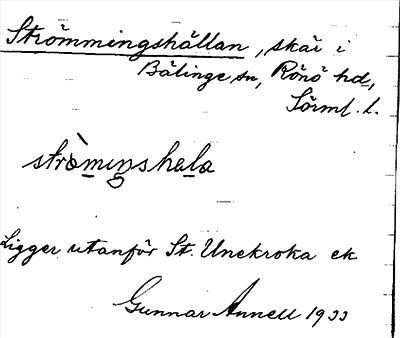 Strömmingshällan, skär i
Bälinge sn, Rönö hd,
Sörml. l.
strò̀minshala
Ligger utanför St. Unekroka ek
Gunnar Annell 1933